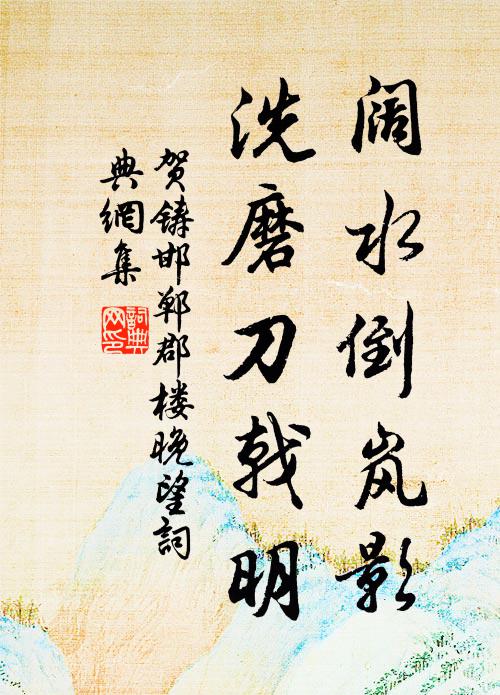 阔水倒岚影
洗磨刀戟明
贺鑄邯郸郡楼晚望詞
典網集
詞典
网印